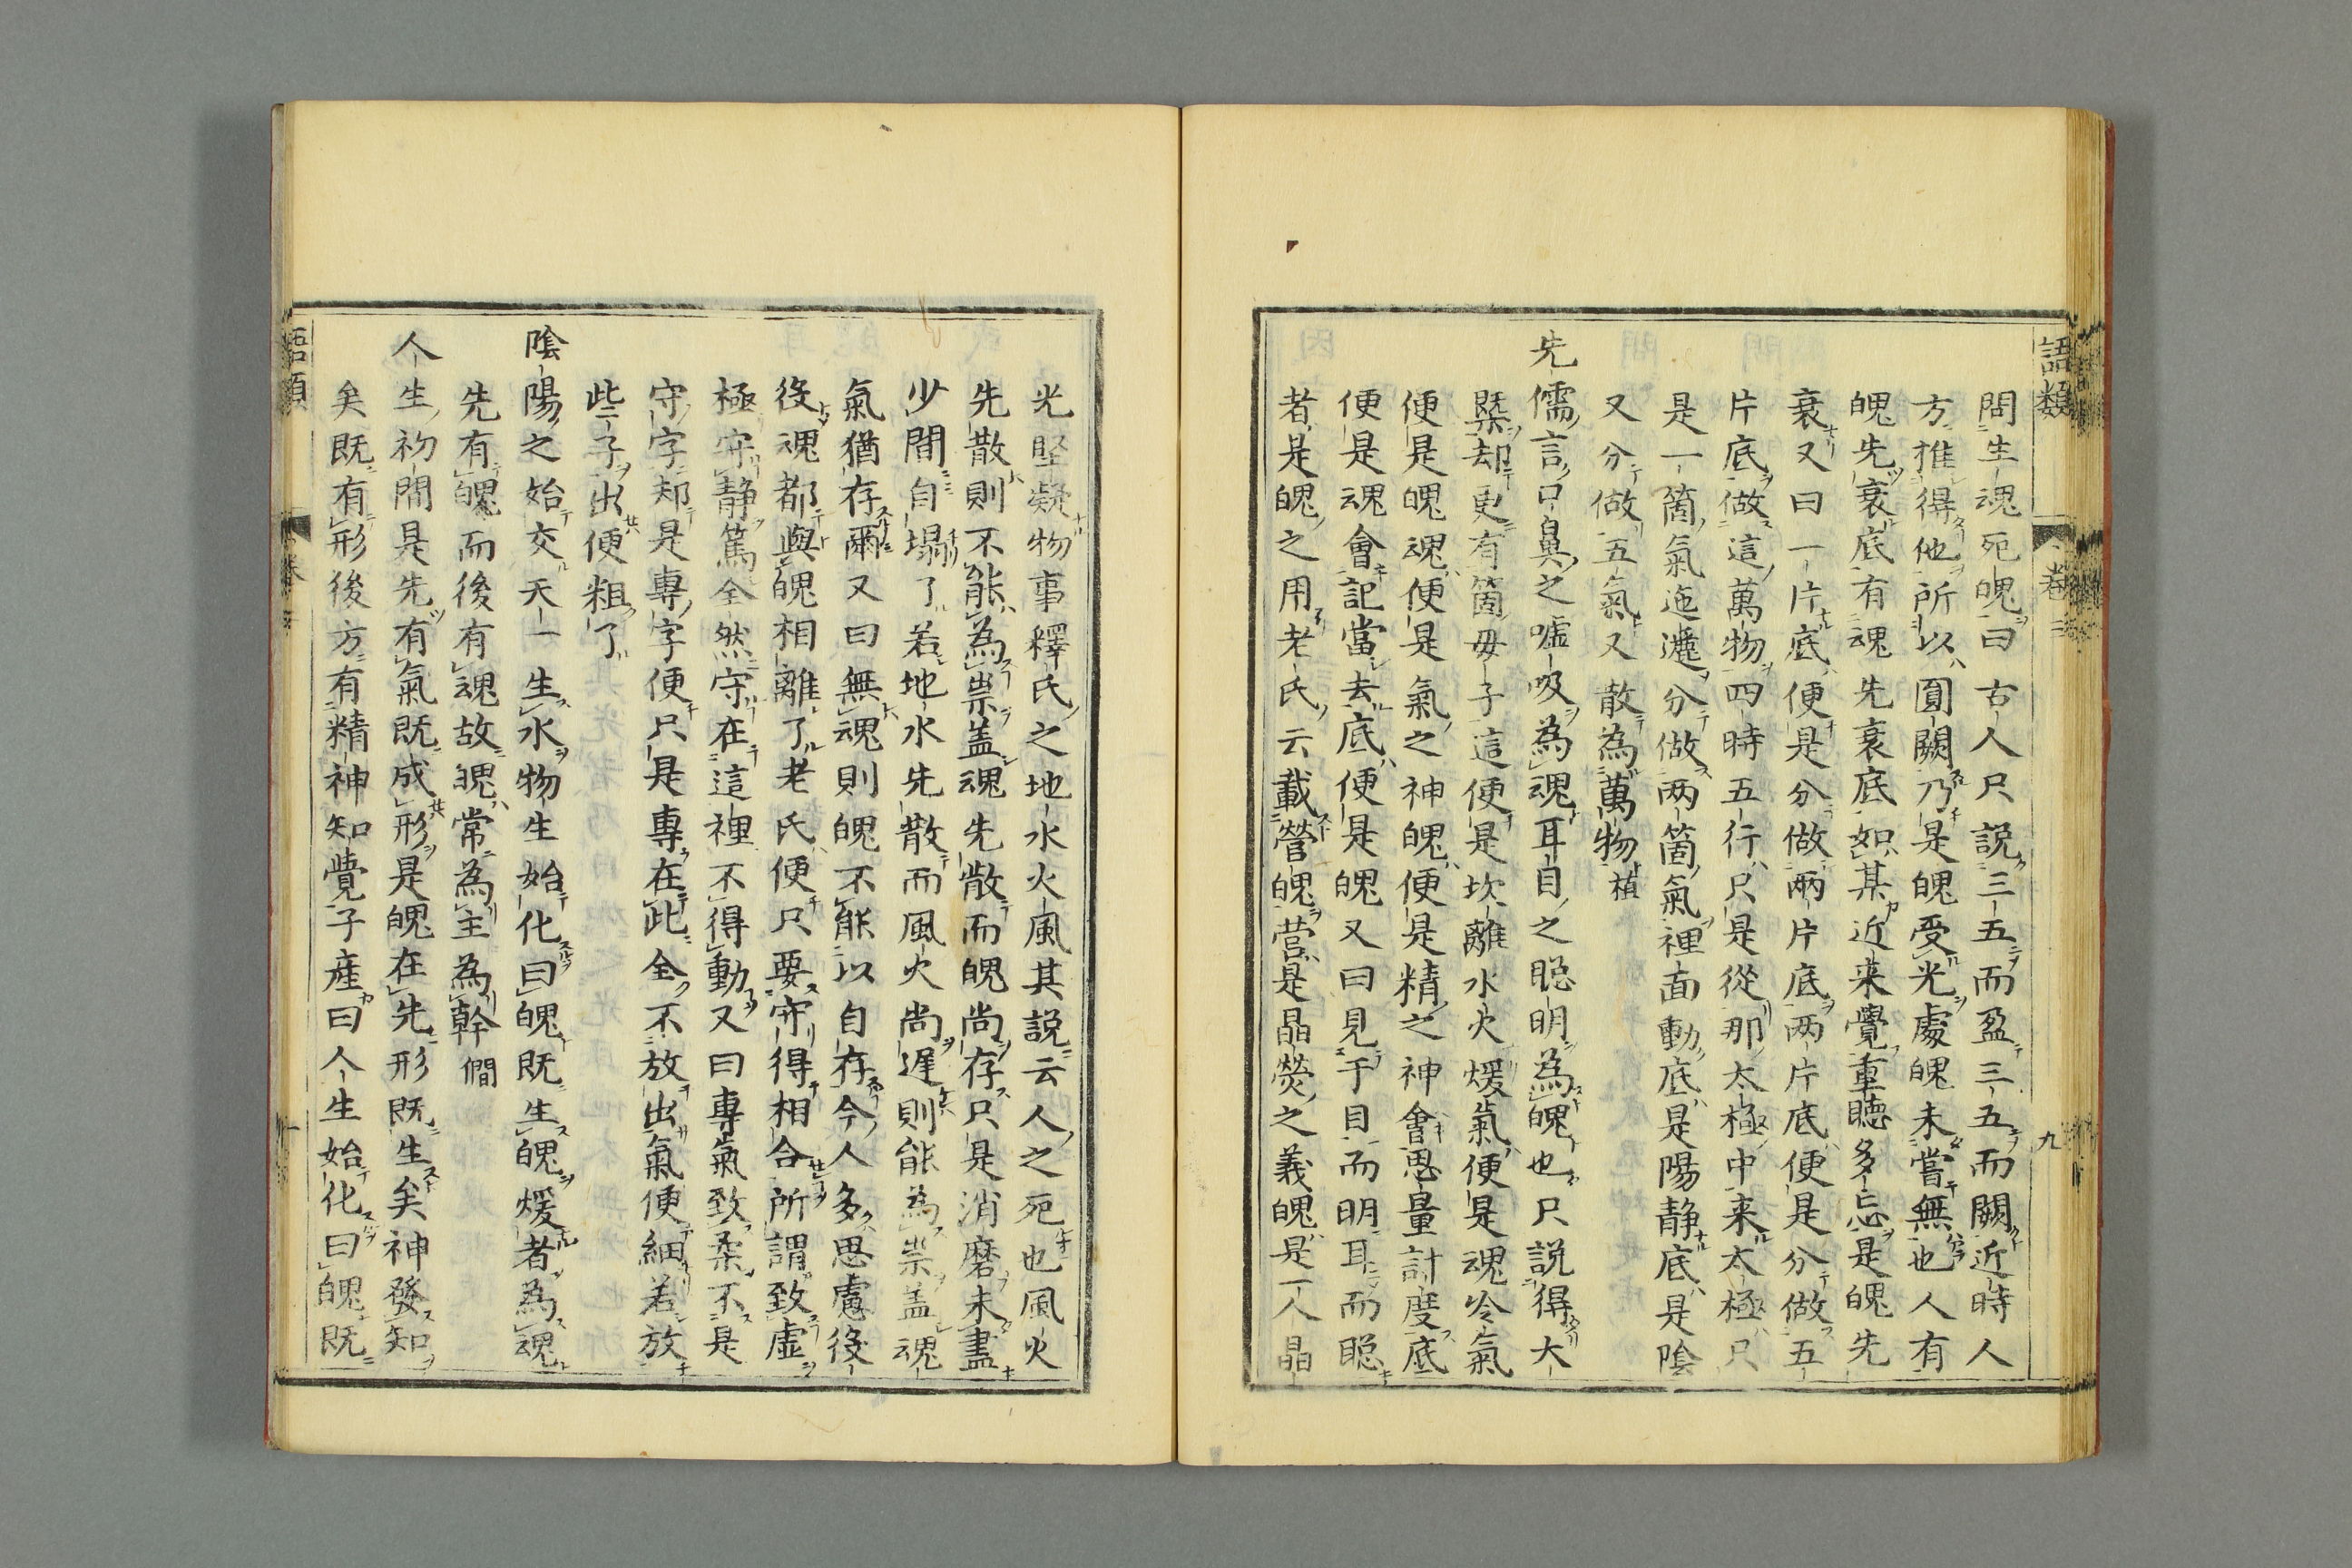 語類
卷三
九
問生魂死魄曰古人尺説三五而盈三五而闕近時人
方推得他所以圓闕乃是魄受光處魄未嘗無也人有
魄先衰底有魂先衰底如某近来覺重聴多忘是魄先
衰又曰一片底便是分做兩片底两片底便是分做五
片底做這萬物四時五行只是從那太極中来太極只
是一箇氣迤邐分做两箇氣裡面動底是陽静底是陰
又分做五氣又散為萬物植
先儒言口鼻之嘘吸為魂耳目之聡明為魄也只説得大
槩却更有箇毋子這便是坎離水火煖氣便是魂冷氣
便是魄魂便是氣之神魄便是精之神會思量計度底
便是魂會記當去底便是魄又曰見于目而明耳而聡
者是魄之用老氏云載營魄営是晶熒之義魄是一人晶
光堅凝物事釋氏之地水火風其説云人之死也風火
先散則不能為祟盖魂先散而魄尚存只是消磨未盡
少間自塌了若地水先散而風火尚遅則能為祟盖魂
氣猶存爾又曰無魂則魄不能以自存今人多思慮後
後魂都與魄相離了老氏便只要守得相合所謂致虚
極守静篤全然守在這裡不得動又曰專氣致柔不是
守字却是專字便只是專在此全不放出氣便細若放
些子出便粗了
陰陽之始交天一生水物生始化曰魄既生魄煖者為魂
先有魄而後有魂故魄常為主為幹 僩
人生初間是先有氣既成形是魄在先形既生矣神發知
矣既有形後方有精神知覺子産曰人生始化曰魄既
語類
卷三